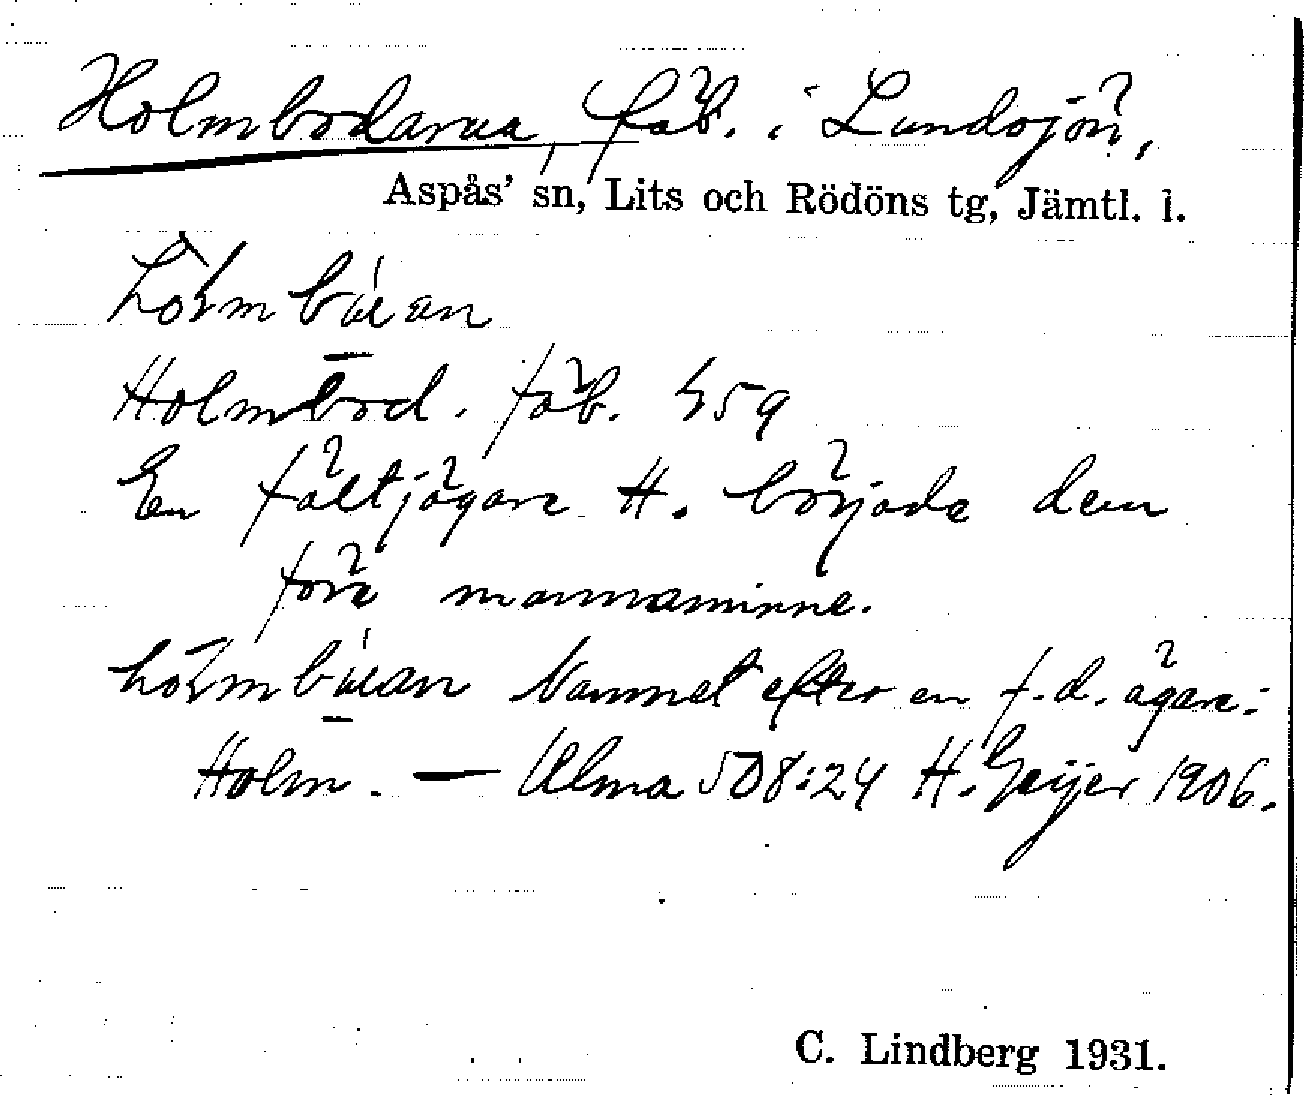 Holmbodarna, fäb. i Lundsjön,
Aspås' sn, Lits och Rödöns tg, Jämtl. l.
Holmbod. fäb. 459
En fältjägare H. började dem
före mannaminne.
Namnet efter en f.d. ägare:
Holm. — Ulma 508:24 H. Geijer 1906.
C. Lindberg 1931.